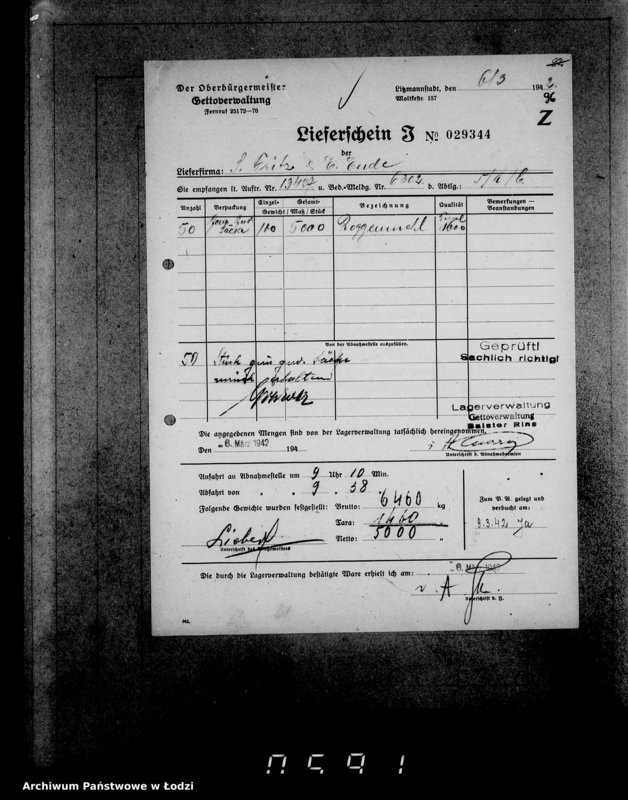 Der Oberbürgermeister
Gettoverwaltung
Fernruf 25172-76
Litzmannstadt, den 6/3 1942.
Moltkestr. 157
96
Z
Lieferschein J № 029344
der
Lieferfirma: & E. Ende
Sie empfangen lt. Auftr. Nr. 13427 u. Bed.-Meldg. Nr. 6802 d. Abtlg.:
Anzahl Verpackung Einzel- Gesamt- Bezeichnung Qualität Bemerkungen —
Gewicht / Maß / Stück Beanstandungen
50 Säcke 100 5000 Roggenmehl 1600
Von der Abnahmestelle auszufüllen.
50 Stück Säcke
zurück erhalten
Geprüft!
Sachlich richtig!
Lagerverwaltung
Gettoverwaltung
Balster Ring
Die angegebenen Mengen sind von der Lagerverwaltung tatsächlich hereingenommen.
Den 6. März 1942 194
Unterschrift d. Abnahmebeamten
Anfahrt an Abnahmestelle um 9 Uhr 10 Min.
Abfahrt von " " 9 " 38 "
Folgende Gewichte wurden festgestellt: Brutto: 6460 kg
Tara: 1460 "
Netto: 5000 "
Unterschrift des Wiegemeisters
Zum B. A. gelegt und
verbucht am:
9.3.42 Ja
Die durch die Lagerverwaltung bestätigte Ware erhielt ich am: 6. März 1942
Unterschrift d. B.
ML
0591
Archiwum Państwowe w Łodzi